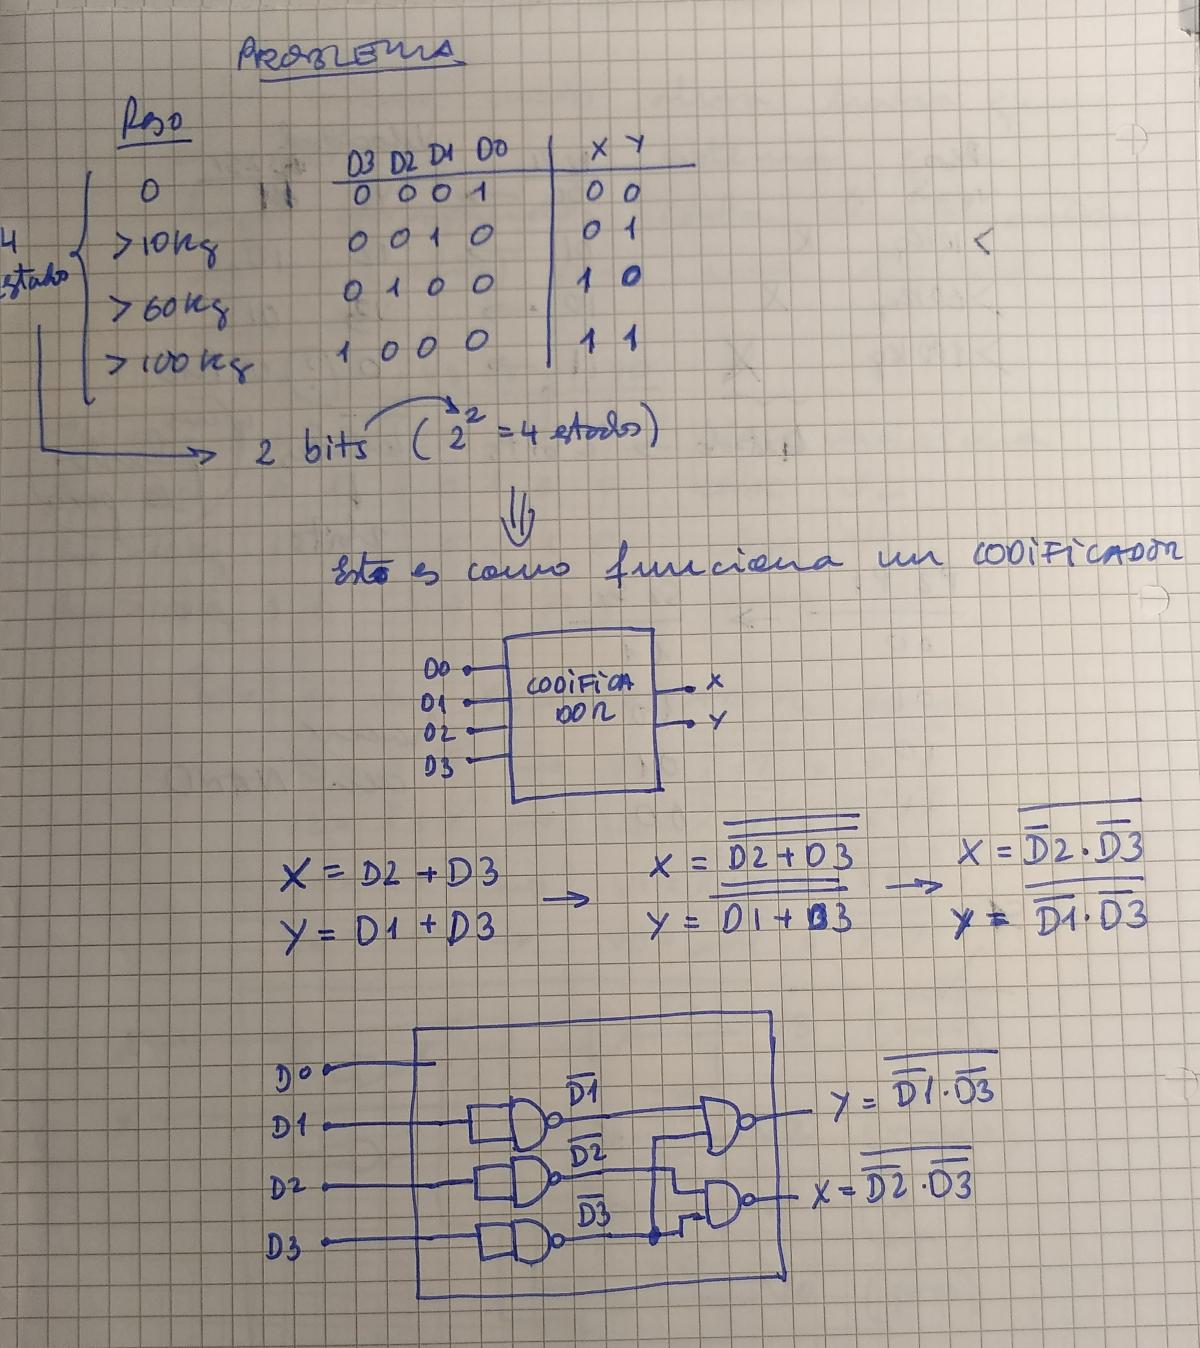 PROBLEMA
Peso
D3 D2 D1 D0 X Y
0 0 0 0 1 0 0
>10Kg 0 0 1 0 0 1
>60Kg 0 1 0 0 1 0
>100Kg 1 0 0 0 1 1
4
estados
2 bits (2² = 4 estados)
Esto es como funciona un CODIFICADOR
D0
D1
D2
D3
CODIFICA
DOR
X
Y
X = D2 + D3 → X = \overline{\overline{D2 + D3}} → X = \overline{\overline{D2}·\overline{D3}}
Y = D1 + D3 Y = \overline{\overline{D1 + D3}} Y = \overline{\overline{D1}·\overline{D3}}
D0
D1 \overline{D1} Y = \overline{\overline{D1}·\overline{D3}}
D2 \overline{D2} X = \overline{\overline{D2}·\overline{D3}}
D3 \overline{D3}